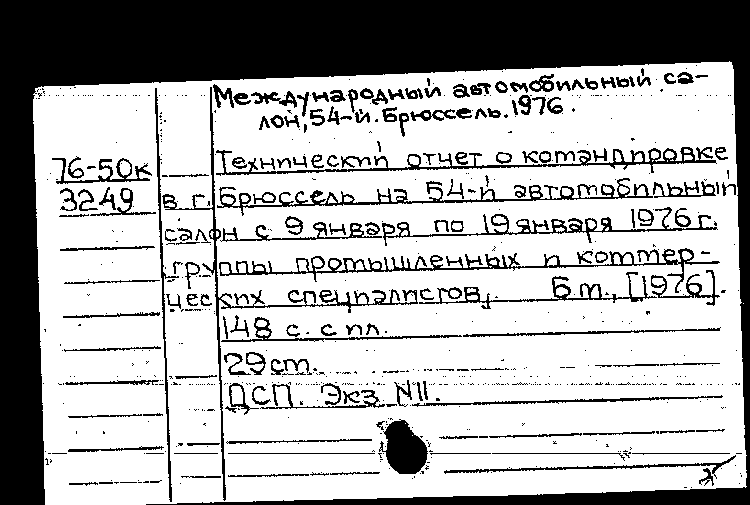 Международный автомобильный са-
лон, 54-й. Брюссель. 1976.
76-50к Технический отчет о командировке
3249 в г. Брюссель на 54-й автомобильный
салон с 9 января по 19 января 1976 г.
группы промышленных и коммер-
ческих специалистов. Б.м., [1976].
148 с. с ил.
29 см.
ДСП. Экз N11.